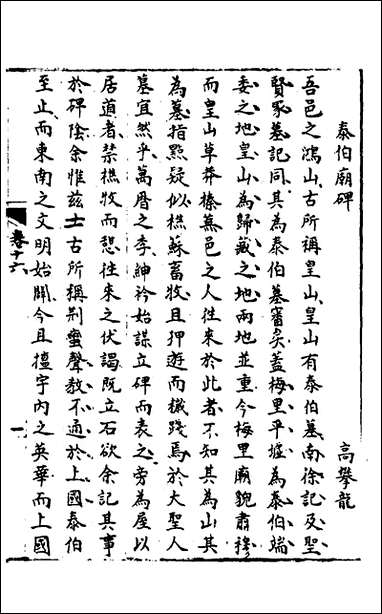 泰伯廟碑
高攀龍
吾邑之鴻山古所稱皇山皇山有泰伯墓南徐記及聖
賢冢墓記同其為泰伯墓審矣蓋梅里平墟為泰伯端
委之地皇山為歸藏之地兩地並重今梅里廟貌肅穆
而皇山草莽榛蕪邑之人往來於此者不知其為山其
為墓指點疑似樵蘇畜牧且狎遊而穢踐焉於大聖人
墓宜然乎萬曆之季紳衿始謀立碑而表之旁為屋以
居道者禁樵牧而憩往來之伏謁既立石欲余記其事
於碑陰余惟茲土古所稱荊蠻聲教不通於上國泰伯
至止而東南之文明始闢今且擅宇內之英華而上國
卷十六
一